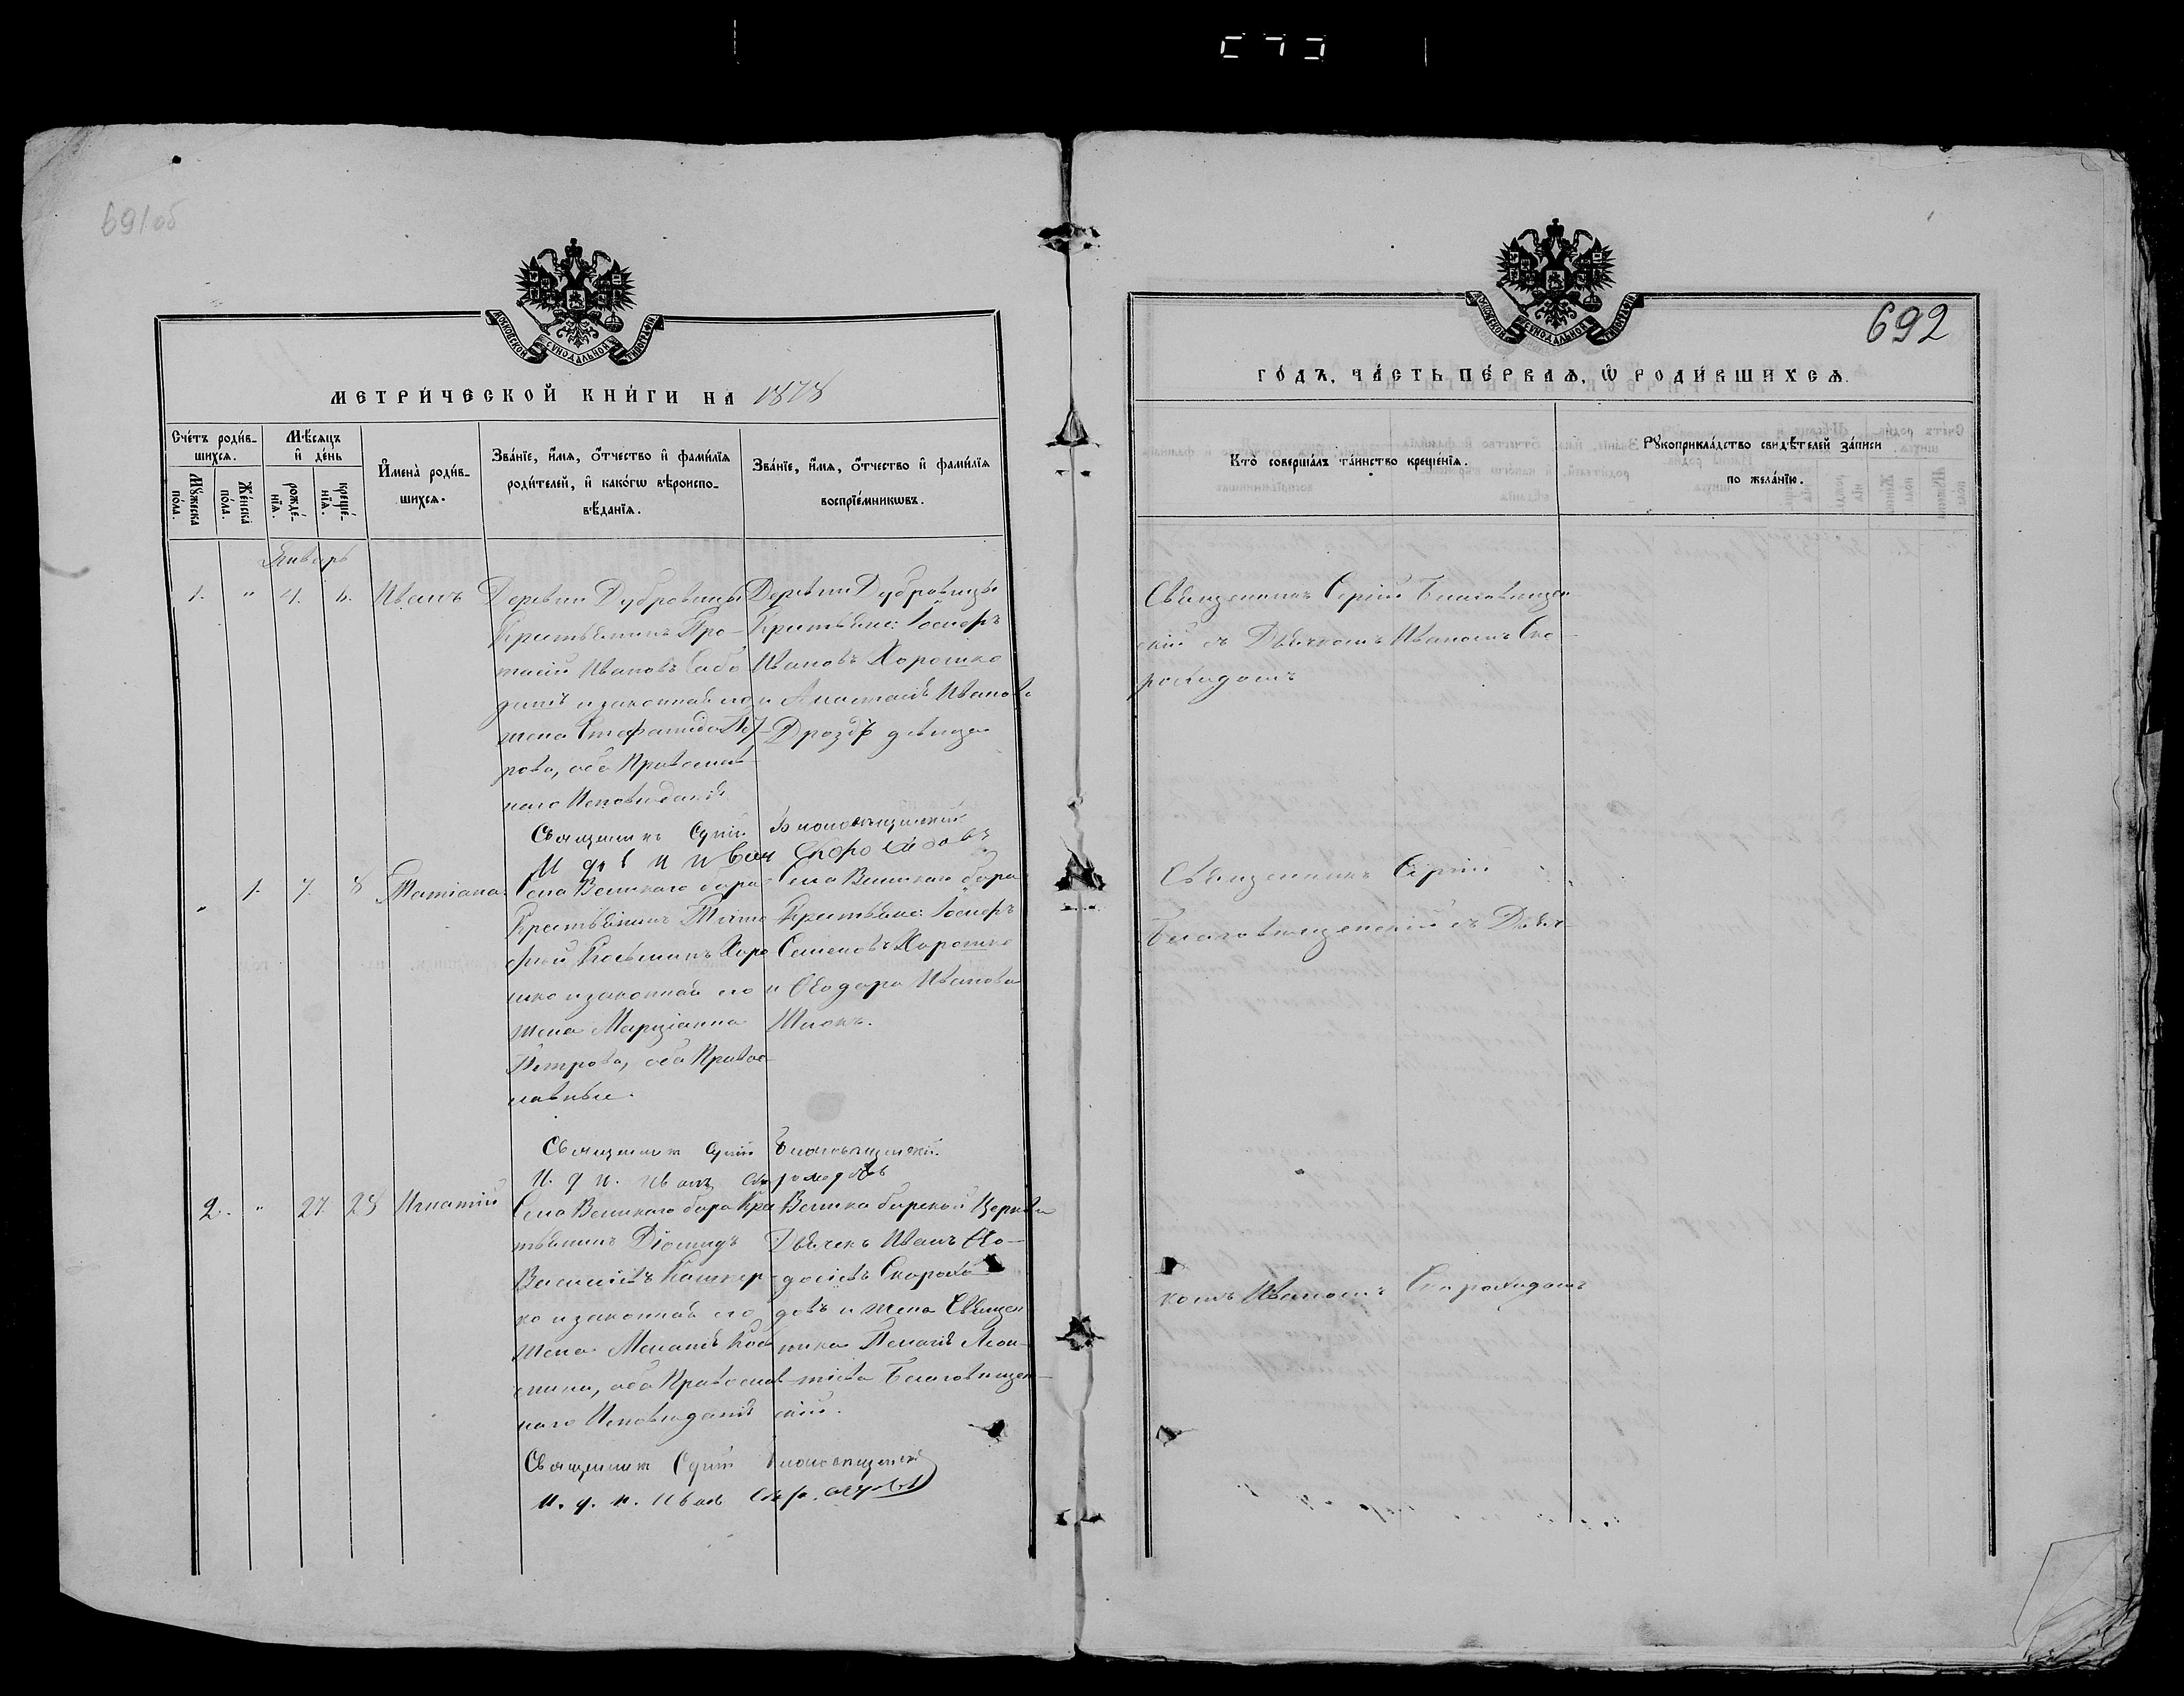 691об
МОСКОВСКОЙ СУНОДАЛЬНОЙ ТИПОГРАФІИ
МЕТРИ́ЧЕСКОЙ КНИ́ГИ НА 1878
Сче́тъ роди́в-
шихсѧ.
Мѣ́сѧцъ
и҆ де́нь
Мꙋ́жеска
пола.
Же́нска
по́ла.
рожде́-
нїѧ.
креще́-
нїѧ.
И҆мена̀ роди́в-
шихсѧ.
Зва́нїе, и҆́мѧ, ѻ҆́тчество и҆ фами́лїѧ
роди́телей, и҆ како́гѡ вѣроиспо-
вѣ́данїѧ.
Зва́нїе, и҆́мѧ, ѻ҆́тчество и҆ фами́лїѧ
воспрїе́мникѡвъ.
Январь
1. " 4. 6. Иванъ
Деревни Дубровицы
Крестьянинъ Про-
тасій Ивановъ
и законная его
жена Стефанида
рова, оба Православ
наго Исповѣданія
Деревни Дубровицы
Крестьяне: Іосифъ
Ивановъ Хорошко
и Анастасія Иванова
Дроздъ девица
Священникъ Сергій Благовѣщенскій
Иванъ Скороходовъ
" 1. 7. 8 Татіана
Села Великаго бора
Крестьянинъ Тимо
фей Косьминъ Хоро
шко и законная его
жена Марціанна
Петрова, оба Право
славные.
Села Великаго бора
Крестьяне: Іосифъ
Семеновъ Хорошко
и Ѳеодора Иванова
Священникъ Сергій Благовѣщенскій
И. д. п. Иванъ Скороходовъ
2. " 27. 28 Игнатій
Села Великаго бора Кре
стьянинъ Діомидъ
Василіевъ
ко и законная его
жена Меланія Кось
мина, оба Православ
наго Исповѣданія
Великоборской Церкви
Дьячекъ Иванъ Ѳео-
досіевъ Скорохо
довъ и жена Священ
ника Пелагія Леон-
тіева Благовѣщен-
скій.
Священникъ Сергій Благовѣщенскій
И. д. п. Иванъ Скороходовъ
692
МОСКОВСКОЙ СУНОДАЛЬНОЙ ТИПОГРАФІИ
ГО́ДЪ, ЧА́СТЬ ПЕ́РВАѦ, Ѡ҆ РОДИ́ВШИХСѦ.
Кто̀ соверша́лъ та́инство креще́нїѧ.
Рꙋкоприкла́дство свидѣ́телей за́писи
по жела́нїю.
Священникъ Сергій Благовѣщен
скій съ Дьячкомъ Иваномъ Ско-
роходомъ
Священникъ Сергій
Благовѣщенскій съ Дьяч-
комъ Иваномъ Скороходомъ